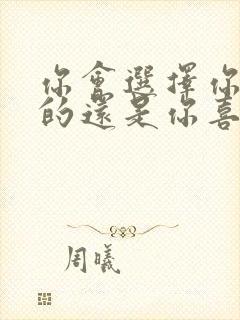 你會選擇你
的還是你喜
周曦